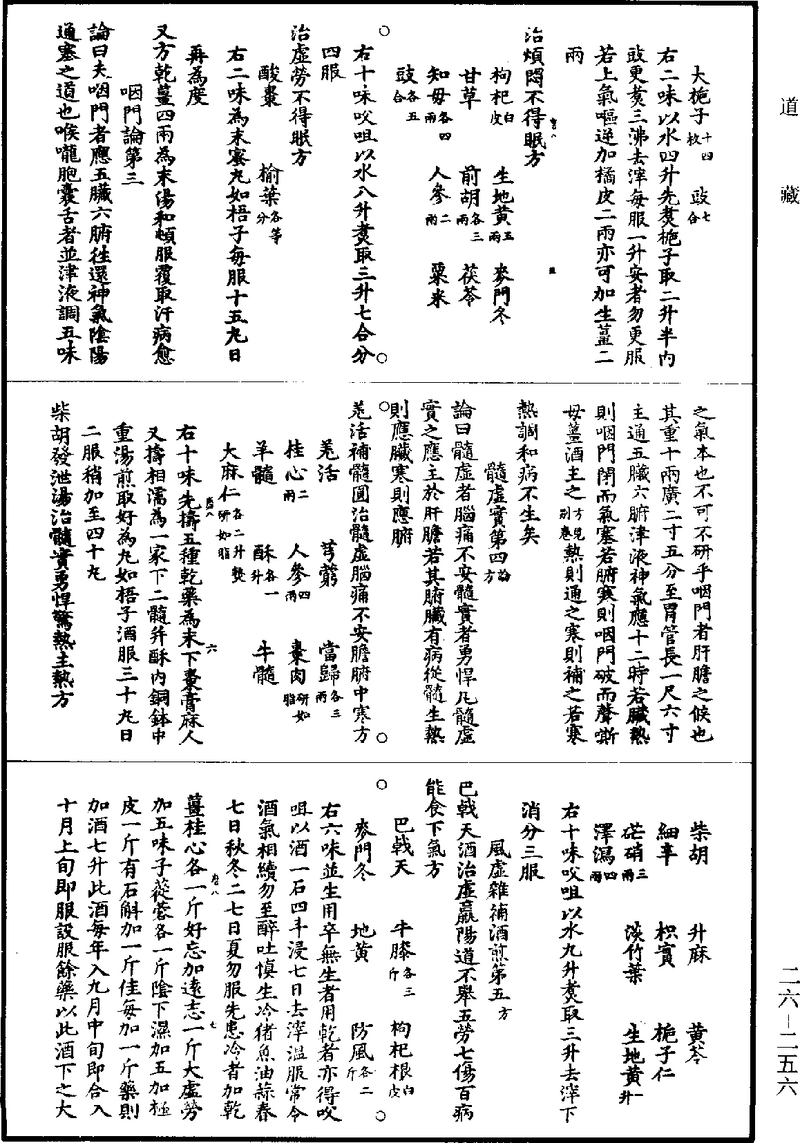 道藏
大梔子十四枚　豉七合
右二味以水四升先煮梔子取二升半內
豉更煮三沸去滓每服一升安者勿更服
若上氣嘔逆加橘皮二兩亦可加生薑二
兩
治煩悶不得眠方
枸杞白皮　生地黃五兩　麥門冬
甘草　前胡各三兩　茯苓
知母各四兩　人參二兩　粟米
豉各五合
右十味㕮咀以水八升煮取三升七合分
四服
治虛勞不得眠方
酸棗　榆葉各等分
右二味為末蜜丸如梧子每服十五丸日
再為度
又方乾薑四兩為末湯和頓服覆取汗病愈
咽門論第三
論曰夫咽門者應五臟六腑往還神氣陰陽
通塞之道也喉嚨胞囊舌者並津液調五味
之氣本也不可不研乎咽門者肝膽之候也
其重十兩廣二寸五分至胃管長一尺六寸
主通五臟六腑津液神氣應十二時若臟熱
則咽門閉而氣塞若腑寒則咽門破而聲嘶
母薑酒主之方見別卷熱則通之寒則補之若寒
熱調和病不生矣
髓虛實第四論方
論曰髓虛者腦痛不安髓實者勇悍凡髓虛
實之應主於肝膽若其腑臟有病從髓生熱
則應臟寒則應腑
羌活補髓圓治髓虛腦痛不安膽腑中寒方
羌活　芎藭　當歸各三兩
桂心二兩　人參四兩　棗肉研如脂
羊髓　酥各一升　牛髓
大麻仁各二升熬研如脂
右十味先擣五種乾藥為末下棗膏麻人
又擣相濡為一家下二髓并酥內銅鉢中
重湯煎取好為丸如梧子酒服三十丸日
二服稍加至四十丸
柴胡發泄湯治髓實勇悍驚熱主熱方
柴胡　升麻　黃芩
細辛　枳實　梔子仁
芒硝三兩　淡竹葉　生地黃一升
澤瀉四兩
右十味㕮咀以水九升煮取三升去滓下
消分三服
風虛雜補酒煎第五方
巴戟天酒治虛羸陽道不舉五勞七傷百病
能食下氣方
巴戟天　牛膝各三斤　枸杞根白皮
麥門冬　地黃　防風各二斤
右六味並生用卒無生者用乾者亦得㕮
咀以酒一石四斗浸七日去滓溫服常令
酒氣相續勿至醉吐慎生冷猪魚油蒜春
七日秋冬二七日夏勿服先患冷者加乾
薑桂心各一斤好忘加遠志一斤大虛勞
加五味子蓯蓉各一斤陰下濕加五加極
皮一斤有石斛加一斤佳每加一斤藥則
加酒七升此酒每年入九月中旬即合入
十月上旬即服設服餘藥以此酒下之大
二六—二五六